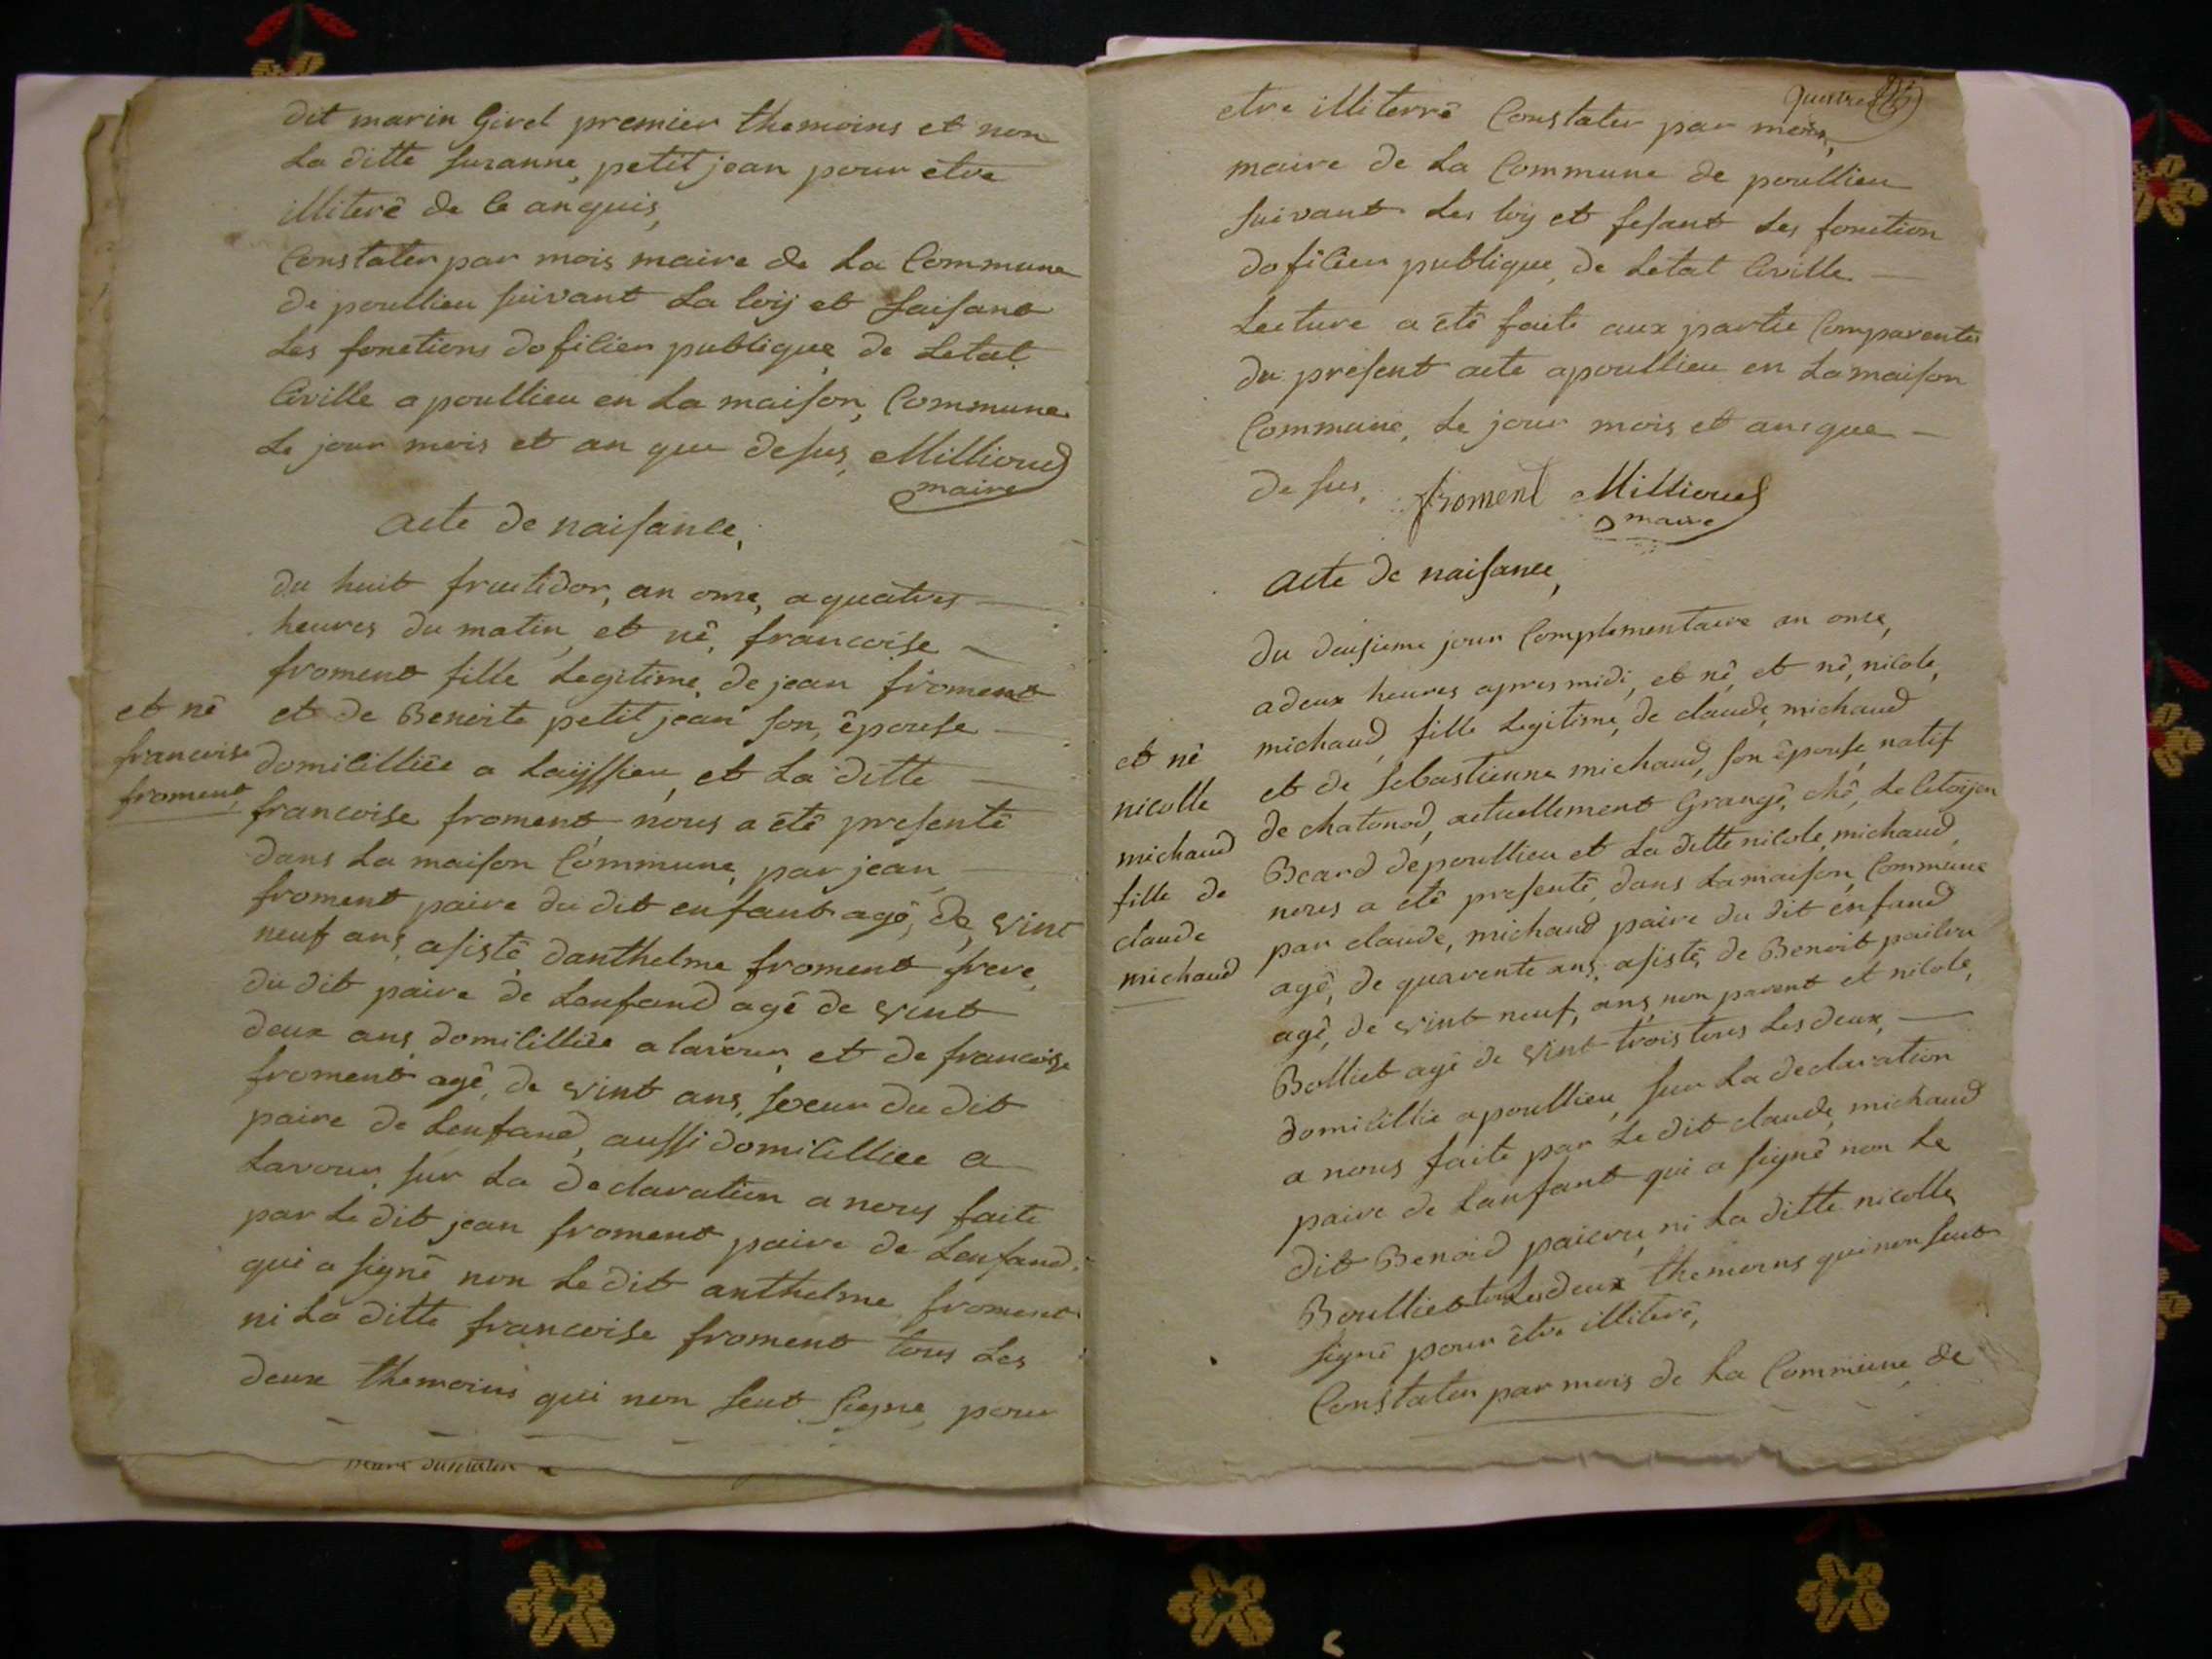 dit marin Girel premier themoins et non
La ditte suzanne, petit jean pour etre
illiterê de ce anquis,
Constater par mois maire de La Commune
de poullieu suivant La loij et faisant
Les fonctions dofilier publique de Letat
Civille a poullieu en La maison, Commune
Le jour mois et an que desus, Millioud
maire
acte de naisance,
du huit fructidor, an onse, a quatres
heures du matin, et nê, francoise
froment fille Legitime, de jean froment
et de Benoite petit jean son, êpouse
domicilliëe a Laijssieu, et La ditte
francoise froment, nous a êtê presentê
dans La maison Commune, par jean
froment paire du dit enfant agê, de, vint
neuf ans, asistê, danthelme froment frere,
du dit paire de Lenfand agê de vint
deux ans, domicilliêe a lavour, et de francoise
froment agê, de vint ans, soeur du dit
paire de Lenfand, aussi domicilliee a
Lavour, sur La declaration a nous faite
par Le dit jean froment paire de Lenfand,
qui a signê non Le dit anthelme, froment
ni La ditte francoise froment tous Les
deux themoins qui non seut signe, pour
et nê
francoise
froment
heure dumatin
etre illiterrê Constater par mois,
maire de La Commune de poullieu
suivant Les loij et fesant Les fonction
dofilier publique, de Letat Civille
Lecture a êtê faite aux partie Comparentes
du present acte a poullieu en La maison
Commune, Le jour mois et an que
desus, froment Millioud
maire
acte de naisance,
du deusieme jour Complementaire an onse,
a deux heures apres midi, et nê, et nê, nicole,
michaud, fille Legitime, de claude, michaud
et de sebastienne michaud, son êpouse, natif
de chatonod, actuellement Grangê, chê, Le Citoijen
Beard de poullieu et La ditte nicole, michaud,
nous a êtê presentê, dans La maison, Commune
par claude, michaud paire du dit enfand
agê, de quarente ans, asistê, de Benoit paileru
agê, de vint neuf, ans, non parent et nicole,
Bolliet agê de vint trois tous Les deux,
domicillie a poullieu, sur La declaration
a nous faite par Le dit claude, michaud
paire de Lanfant qui a signê non Le
dit Benoid paicru, ni La ditte nicolle,
Boulliet tous Les deux themoins qui non seut
signê pour être illiterê,
Constater par mois de La Commune de
et nê
nicolle
michaud
fille de
claude
michaud